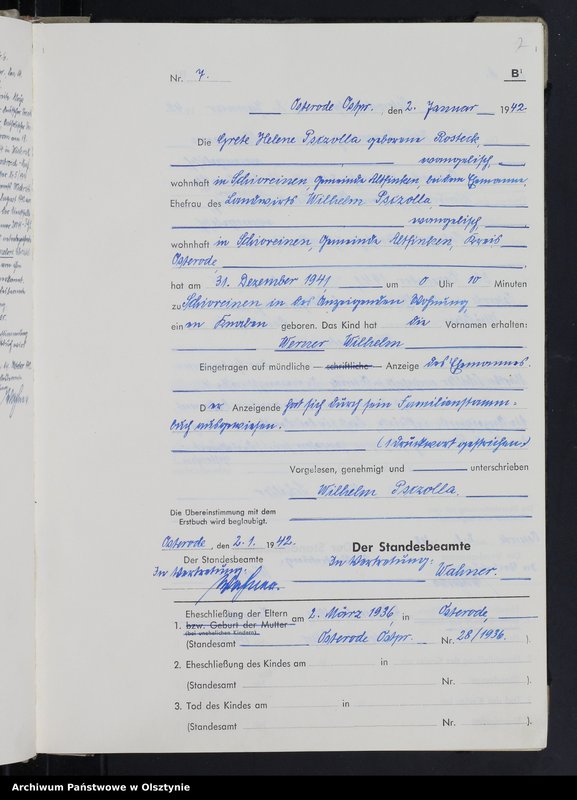 2
Nr. 7. B¹
Osterode Ostpr., den 2. Januar 1942
Die Grete Helene Pszolla geborene Rosteck,
evangelisch,
wohnhaft in Schioreinen, Gemeinde Altfinken, bei dem Ehemanne,
Ehefrau des Landwirts Wilhelm Pszolla,
evangelisch,
wohnhaft in Schioreinen, Gemeinde Altfinken, Kreis
Osterode,
hat am 31. Dezember 1941 um 0 Uhr 10 Minuten
zu Schioreinen in des Anzeigenden Wohnung,
ein en Knaben geboren. Das Kind hat die Vornamen erhalten:
Werner Wilhelm
Eingetragen auf mündliche — schriftliche — Anzeige des Ehemannes.
D er Anzeigende hat sich durch sein Familienstamm=
buch ausgewiesen.
(1 Druckwort gestrichen.)
Vorgelesen, genehmigt und unterschrieben
Wilhelm Pszolla.
Die Übereinstimmung mit dem
Erstbuch wird beglaubigt.
Osterode, den 2. 1. 1942.
Der Standesbeamte
Der Standesbeamte
In Vertretung:
In Vertretung:
Wahner.
1. Eheschließung der Eltern am 2. März 1936 in Osterode,
bzw. Geburt der Mutter
(bei unehelichen Kindern)
(Standesamt Osterode Ostpr. Nr. 28/1936. ).
2. Eheschließung des Kindes am in
(Standesamt Nr. ).
3. Tod des Kindes am in
(Standesamt Nr. ).
Archiwum Państwowe w Olsztynie